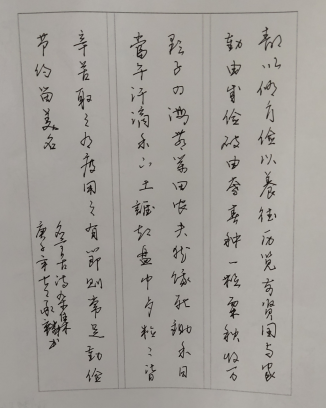 静以修身俭以养德历览前贤国与家
勤由成俭破由奢春种一粒粟秋收万
颗子四海无闲田农夫犹饿死锄禾日
当午汗滴禾下土谁知盘中夕粒〻皆
辛苦取之有度用之有节则常足勤俭
节约留美名
古诗杂集
庚子年书